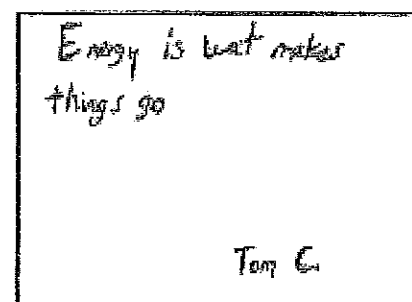 Energy is wat makes
things go
Tom C.